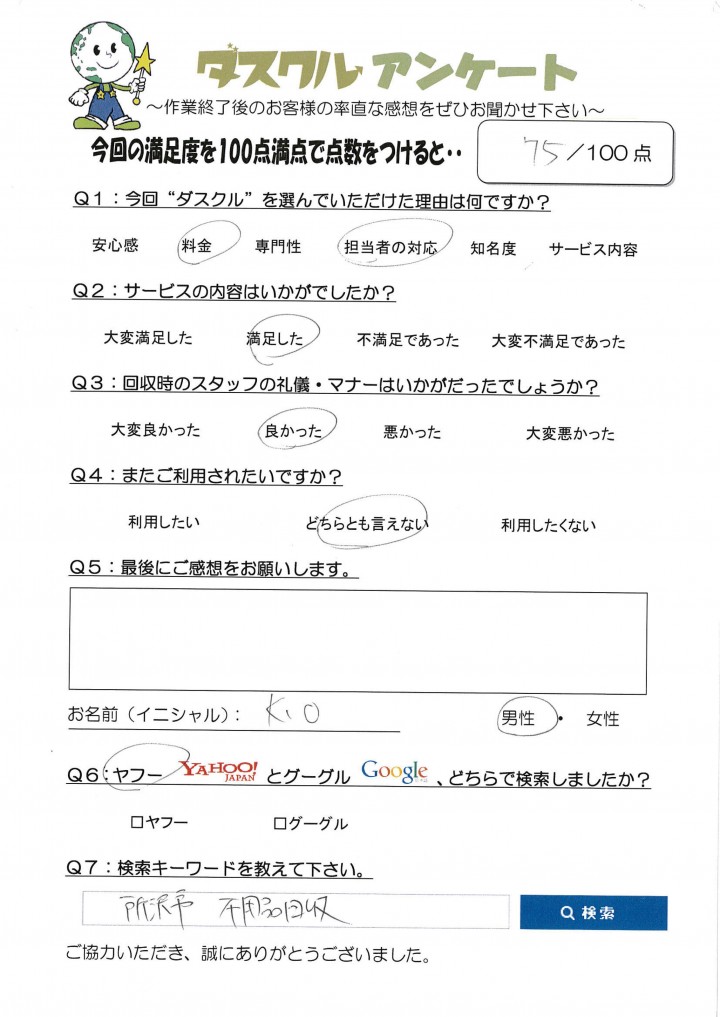 ダスクルアンケート
～作業終了後のお客様の率直な感想をぜひお聞かせ下さい～
今回の満足度を100点満点で点数をつけると‥ 75/100点
Q1：今回“ダスクル”を選んでいただけた理由は何ですか？
安心感 料金 専門性 担当者の対応 知名度 サービス内容
Q2：サービスの内容はいかがでしたか？
大変満足した 満足した 不満足であった 大変不満足であった
Q3：回収時のスタッフの礼儀・マナーはいかがだったでしょうか？
大変良かった 良かった 悪かった 大変悪かった
Q4：またご利用されたいですか？
利用したい どちらとも言えない 利用したくない
Q5：最後にご感想をお願いします。
お名前（イニシャル）： K、O 男性 ・ 女性
Q6：ヤフー YAHOO! JAPAN とグーグル Google 、どちらで検索しましたか？
□ヤフー □グーグル
Q7：検索キーワードを教えて下さい。
所沢市 不用品回収 検索
ご協力いただき、誠にありがとうございました。